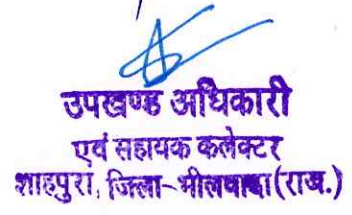 उपखण्ड अधिकारी
एवं सहायक कलेक्टर
शाहपुरा, जिला-भीलवाड़ा (राज.)